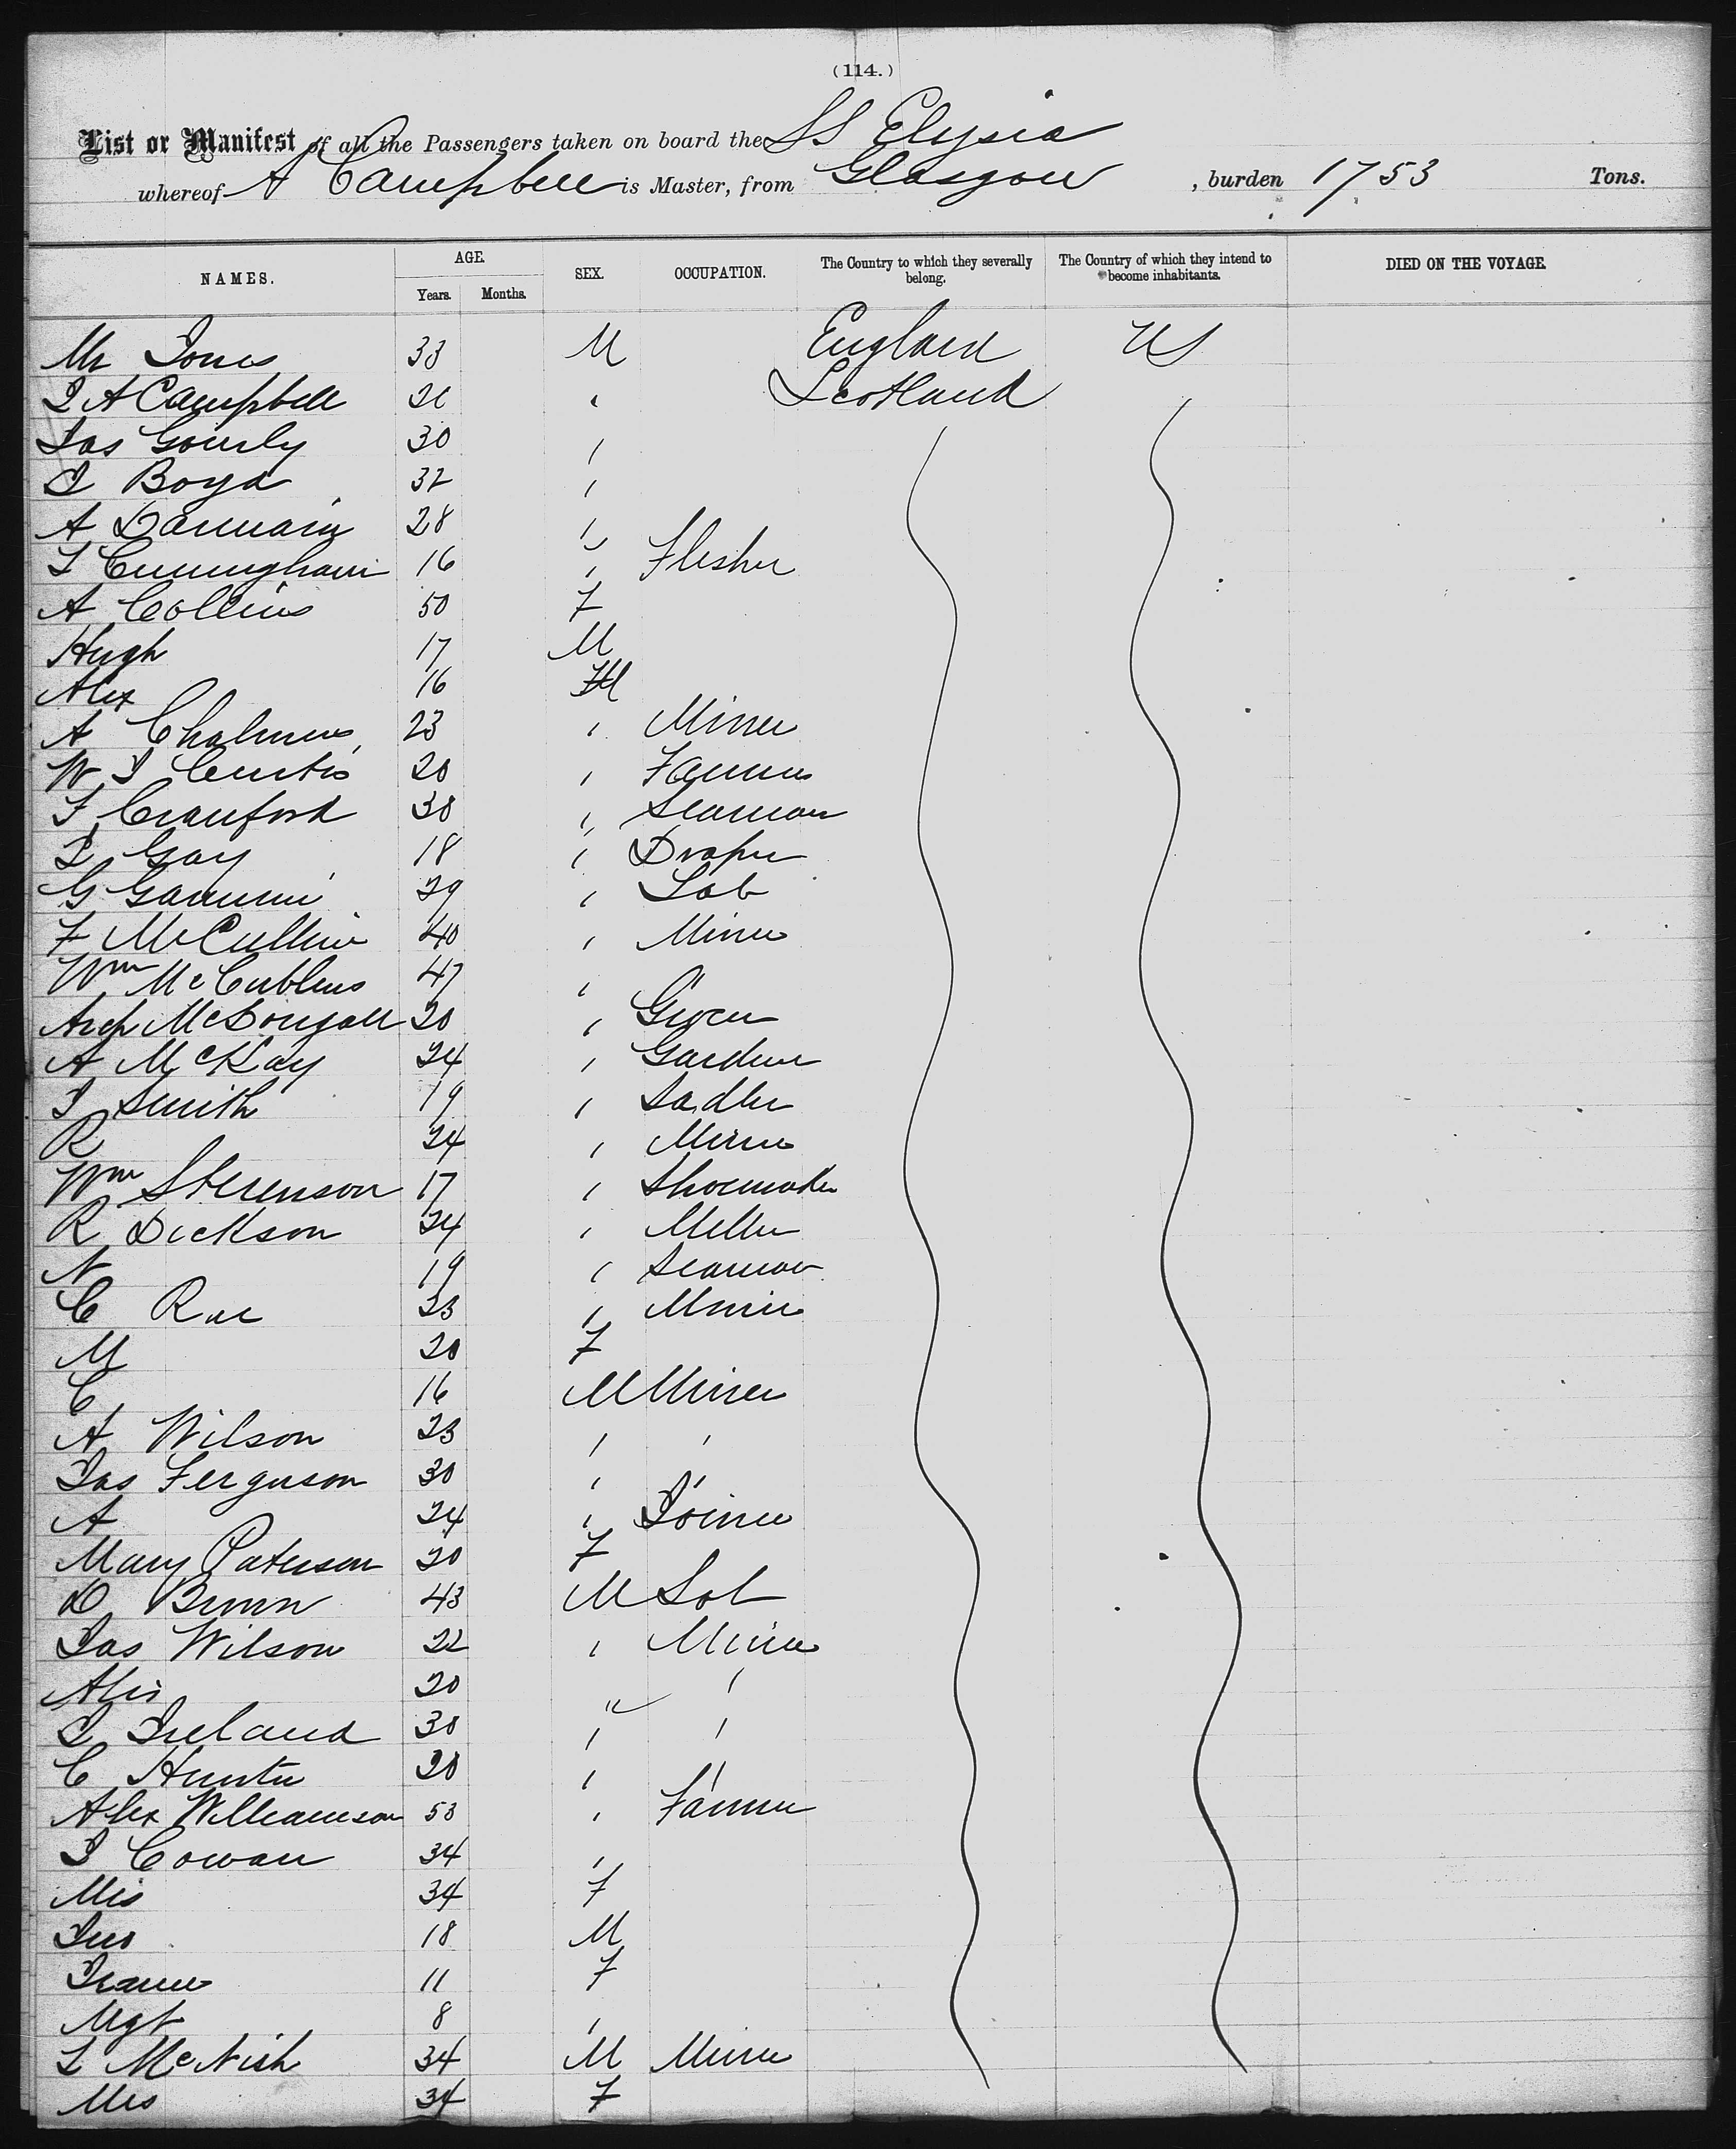 (114.)
List or Manifest of all the Passengers taken on board the SS Elysia
whereof A Campbell is Master, from Glasgow, burden 1753 Tons.
NAMES. AGE. SEX. OCCUPATION. The Country to which they severally belong. The Country of which they intend to become inhabitants. DIED ON THE VOYAGE.
Years. Months.
Mr Jones 33 M England US
J A Campbell 21 " Scotland
Jas Gourly 30 "
J Boyd 32 "
A 28 "
J Cunningham 16 " Flesher
A Collins 50 F
Hugh 17 M
Alex 16 M
A Chalmers 23 " Miner
W J Curtis 20 " Farmer
F Crauford 30 " Seaman
J Gay 18 " Draper
G 29 " Lab
F McCullin 40 " Miner
Wm McCubbins 47 " "
Arch McDougall 20 " Grocer
A McKay 24 " Gardner
J Smith 19 " Sadler
R 24 " Miner
Wm Stevenson 17 " Shoemaker
R Dickson 24 " Miller
N 19 " Seaman
C Rae 23 " Miner
M 20 F
C 16 M Miner
A Wilson 23 " "
Jas Ferguson 30 " "
A 24 " Joiner
Mary Paterson 20 F
D Brown 43 M Lab
Jas Wilson 22 " Miner
Alex 20 " "
J Ireland 30 " "
C Hunter 20 " "
Alex Williamson 53 " Farmer
J Cowan 34 "
Mrs 34 F
Jno 18 M
11 F
Mgt 8 "
J McNish 34 M Miner
Mrs 34 F